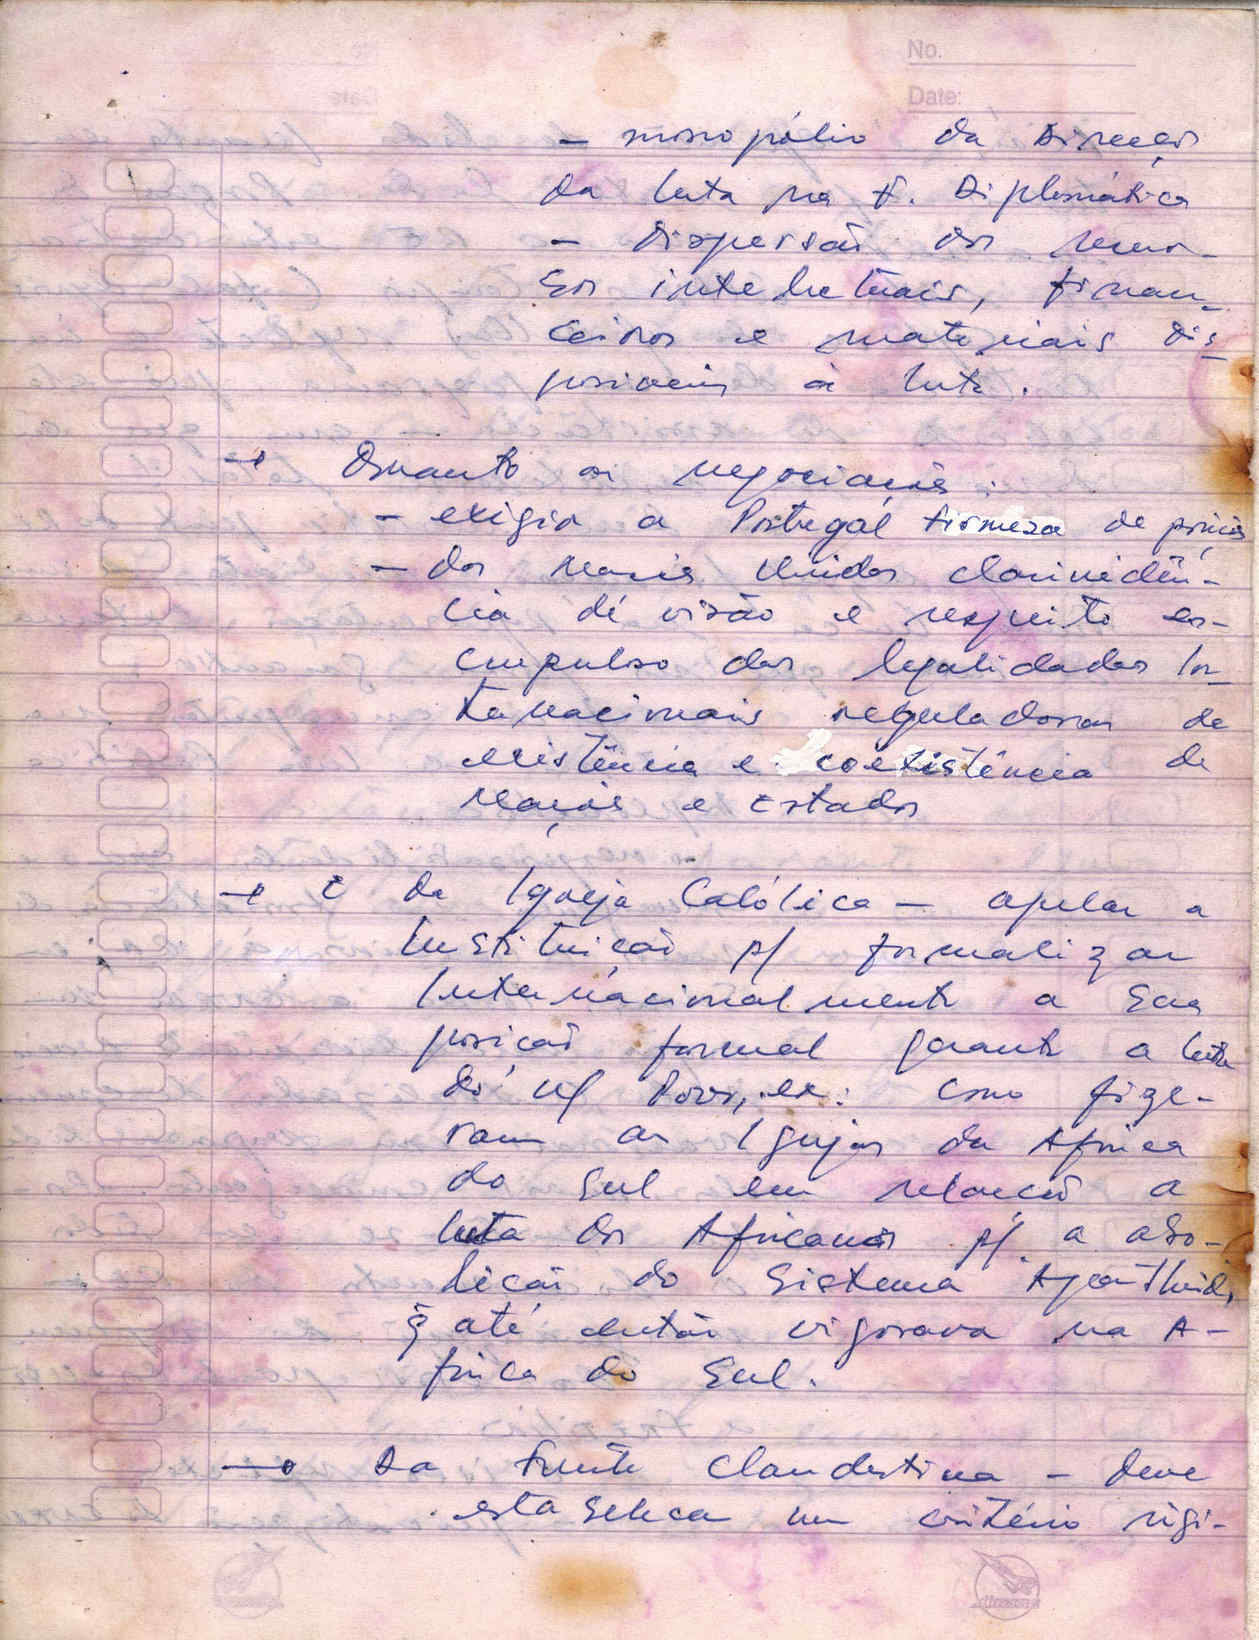 No.
Date:
- monopólio da Direcção
da luta na F. Diplomática
- Dispersão dos recur-
sos intelectuais, finan-
ceiros e materiais dis-
poniveis à luta.
→ Quanto as negociações:
- exigir a Portugal firmeza de princi
- das Nações Unidas clarividên-
cia de visão e respeito es-
crupuloso das legalidades In-
ternacionais reguladoras de
existência e coexistência de
Nações e Estados
→ E da Igreja Católica - apelar a
Instituição p/ formalizar
Internacionalmente a sua
posição formal perante a luta
do n/ Povo, ex: como fize-
ram as Igrejas da Africa
do Sul em relação a
luta dos Africanos p/ a abo-
lição do Sistema Apartheid,
q̃ até então vigorava na A-
frica do Sul.
→ Da Frente Clandestina - deve
estabelecer um critério rigi-